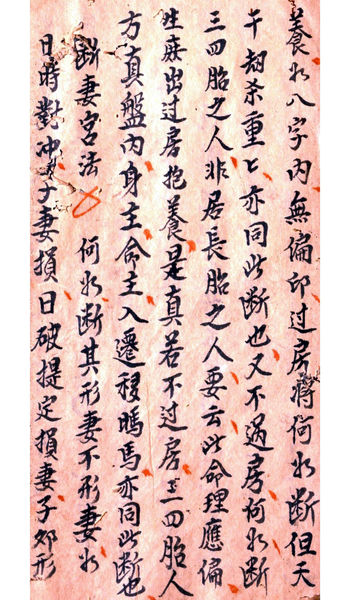 養狀八字内無偏印过房將何以断但天
干刼杀重匕亦同此断也又不过房何以断
三四胎之人非居長胎之人要云此命理應偏
姓庶出过房抱養是真若不过房三四胎人
方真盤内身主命主入遷移鳴馬亦同此断也
断妻宫法 何以断其形妻不形妻以
日時對冲子妻損日破提定損妻子卯形